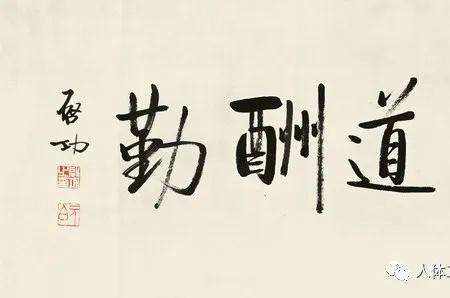 道酬勤
啓功
人体